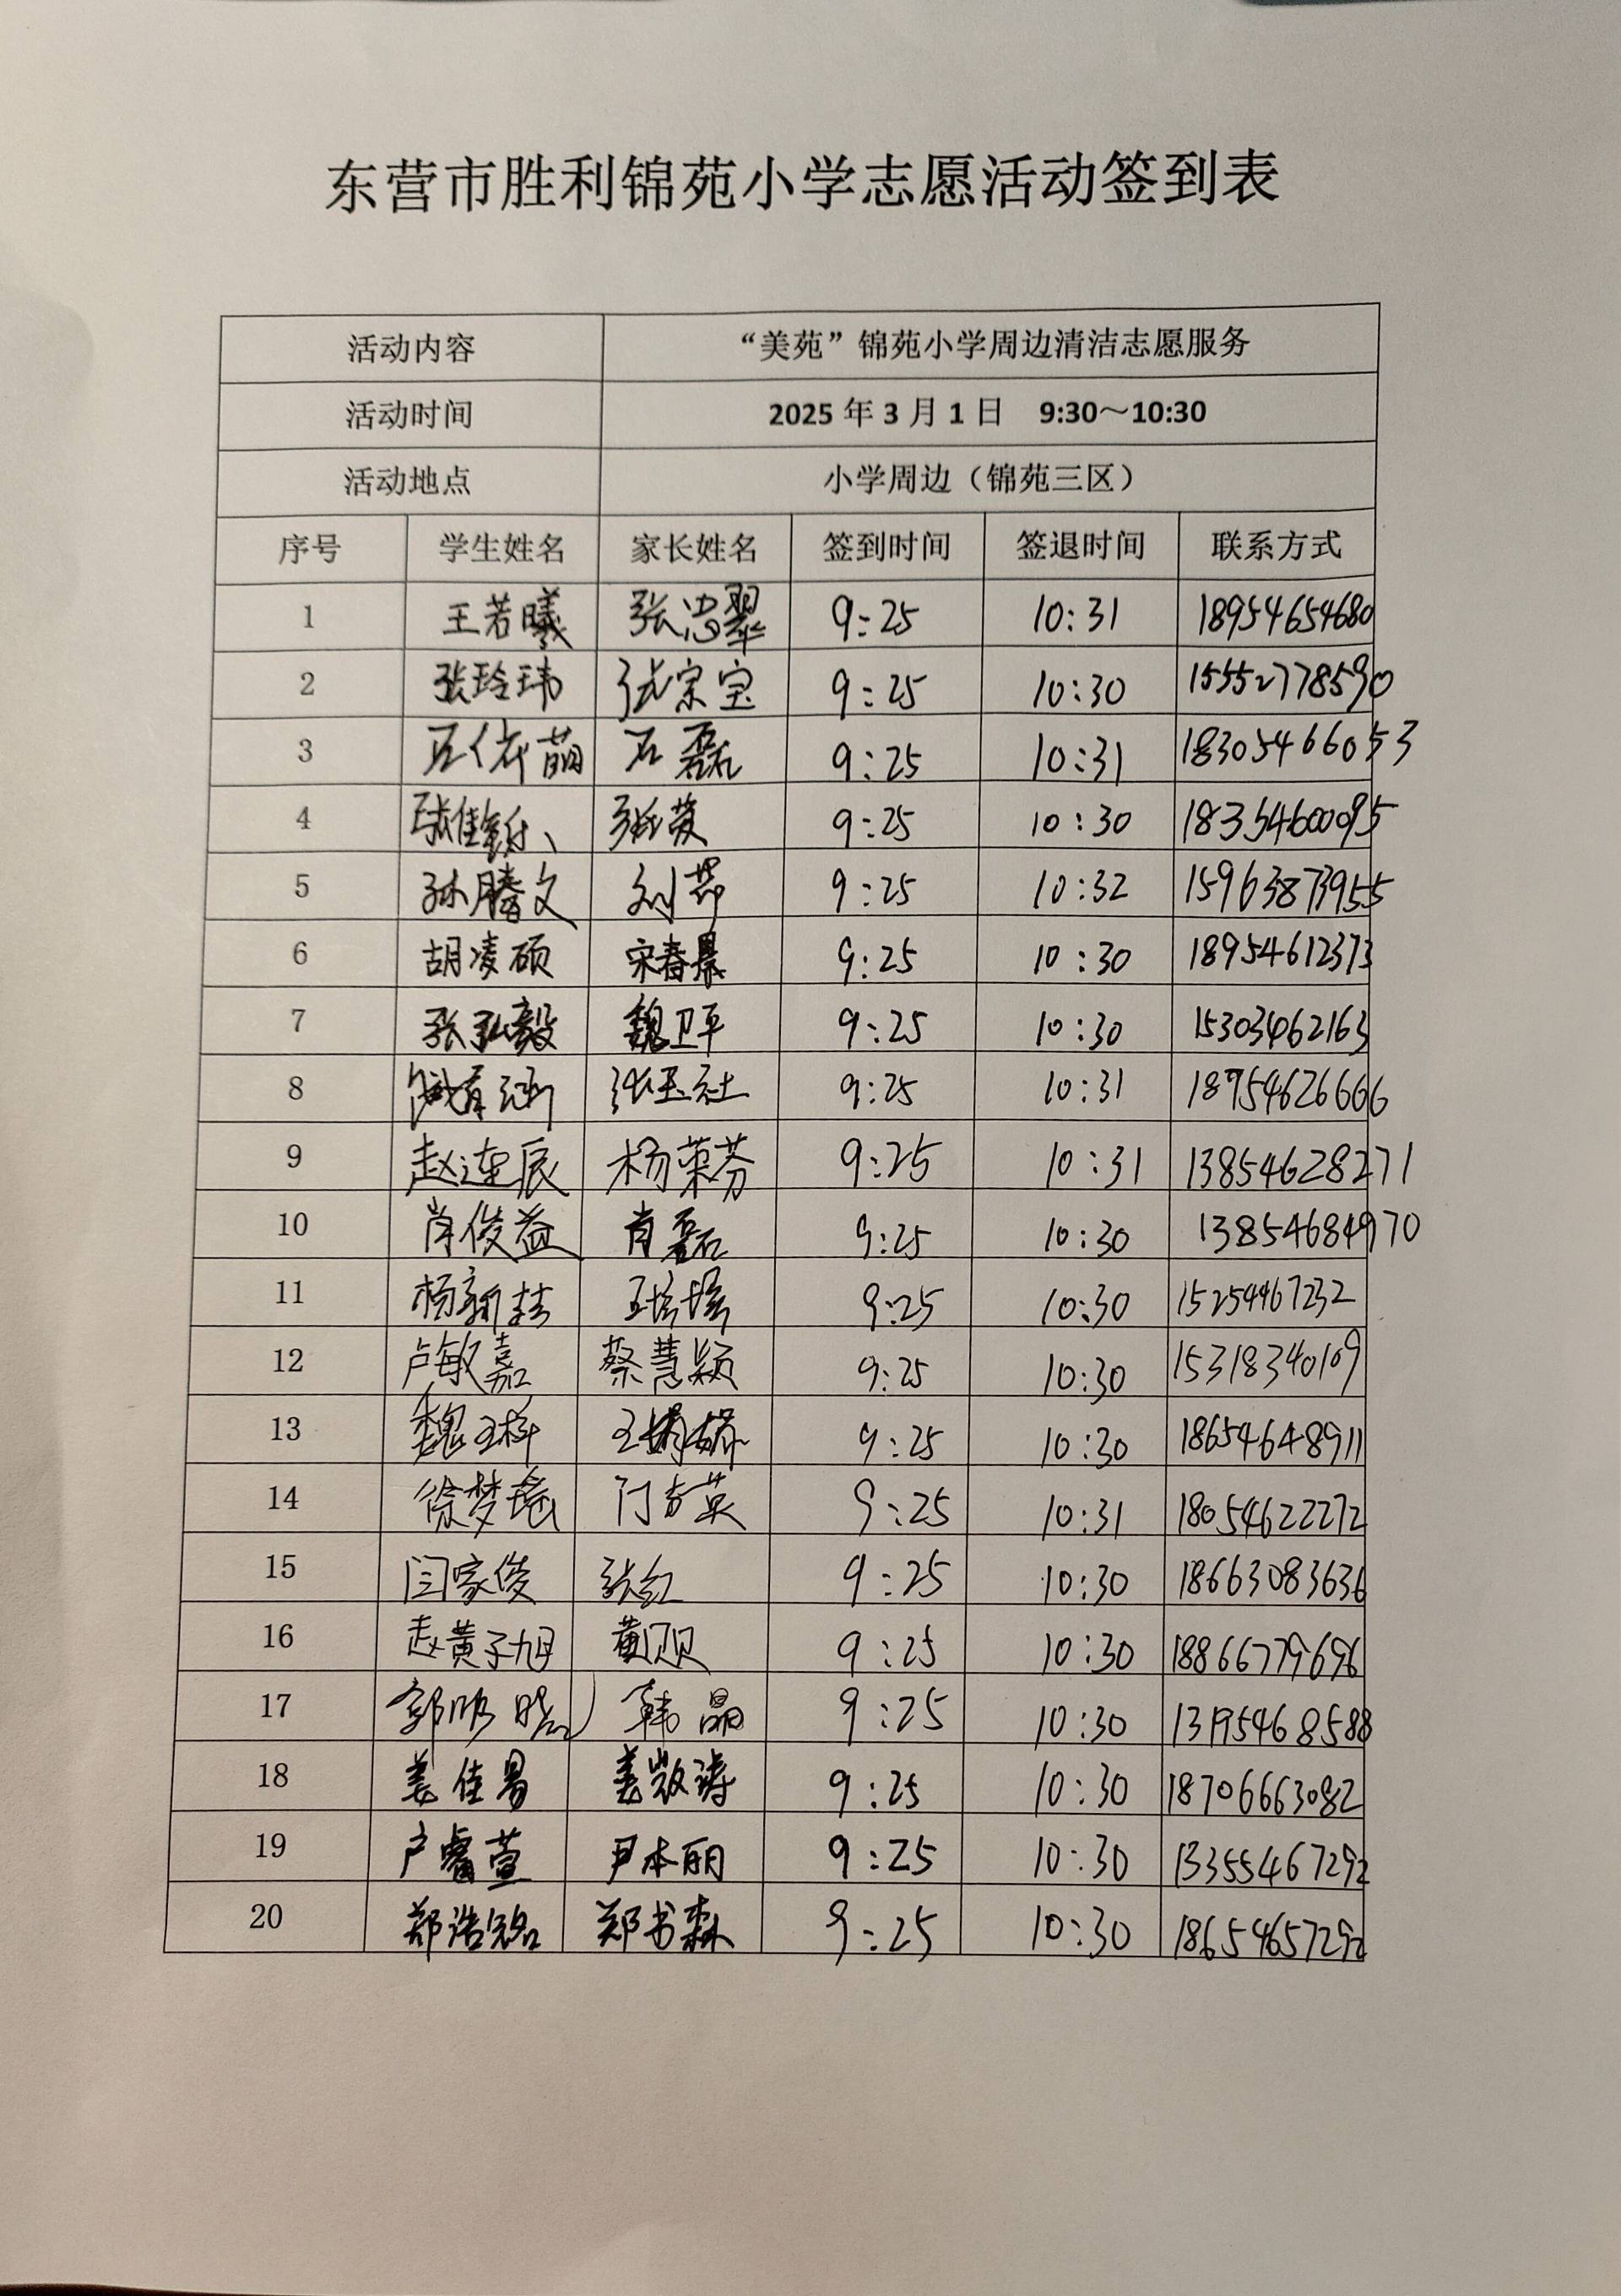 东营市胜利锦苑小学志愿活动签到表
活动内容 “美苑”锦苑小学周边清洁志愿服务
活动时间 2025 年 3 月 1 日 9:30～10:30
活动地点 小学周边（锦苑三区）
序号 学生姓名 家长姓名 签到时间 签退时间 联系方式
1 王若曦 张忠翠 9:25 10:31 18954654680
2 张玲玮 张宗宝 9:25 10:30 15552778590
3 石依萌 石磊 9:25 10:31 18305466053
4 9:25 10:30 18354600095
5 孙腾文 刘昂 9:25 10:32 15963873955
6 胡凌硕 宋春晨 9:25 10:30 18954612373
7 张弘毅 魏卫平 9:25 10:30 15303462163
8 张玉社 9:25 10:31 18954626666
9 赵连辰 杨荣芬 9:25 10:31 13854628271
10 肖俊益 肖磊 9:25 10:30 13854684970
11 杨新喆 9:25 10:30 15254467232
12 卢敏嘉 蔡慧颖 9:25 10:30 15318340109
13 9:25 10:30 18654648911
14 徐梦瑶 门方英 9:25 10:31 18054622272
15 闫家俊 张红 9:25 10:30 18663083636
16 赵黄子旭 黄贝贝 9:25 10:30 18866779696
17 韩晶 9:25 10:30 13195468588
18 姜佳易 姜凯涛 9:25 10:30 18706663082
19 卢睿萱 尹本丽 9:25 10:30 13355467292
20 郑浩铭 郑书森 9:25 10:30 18654657292